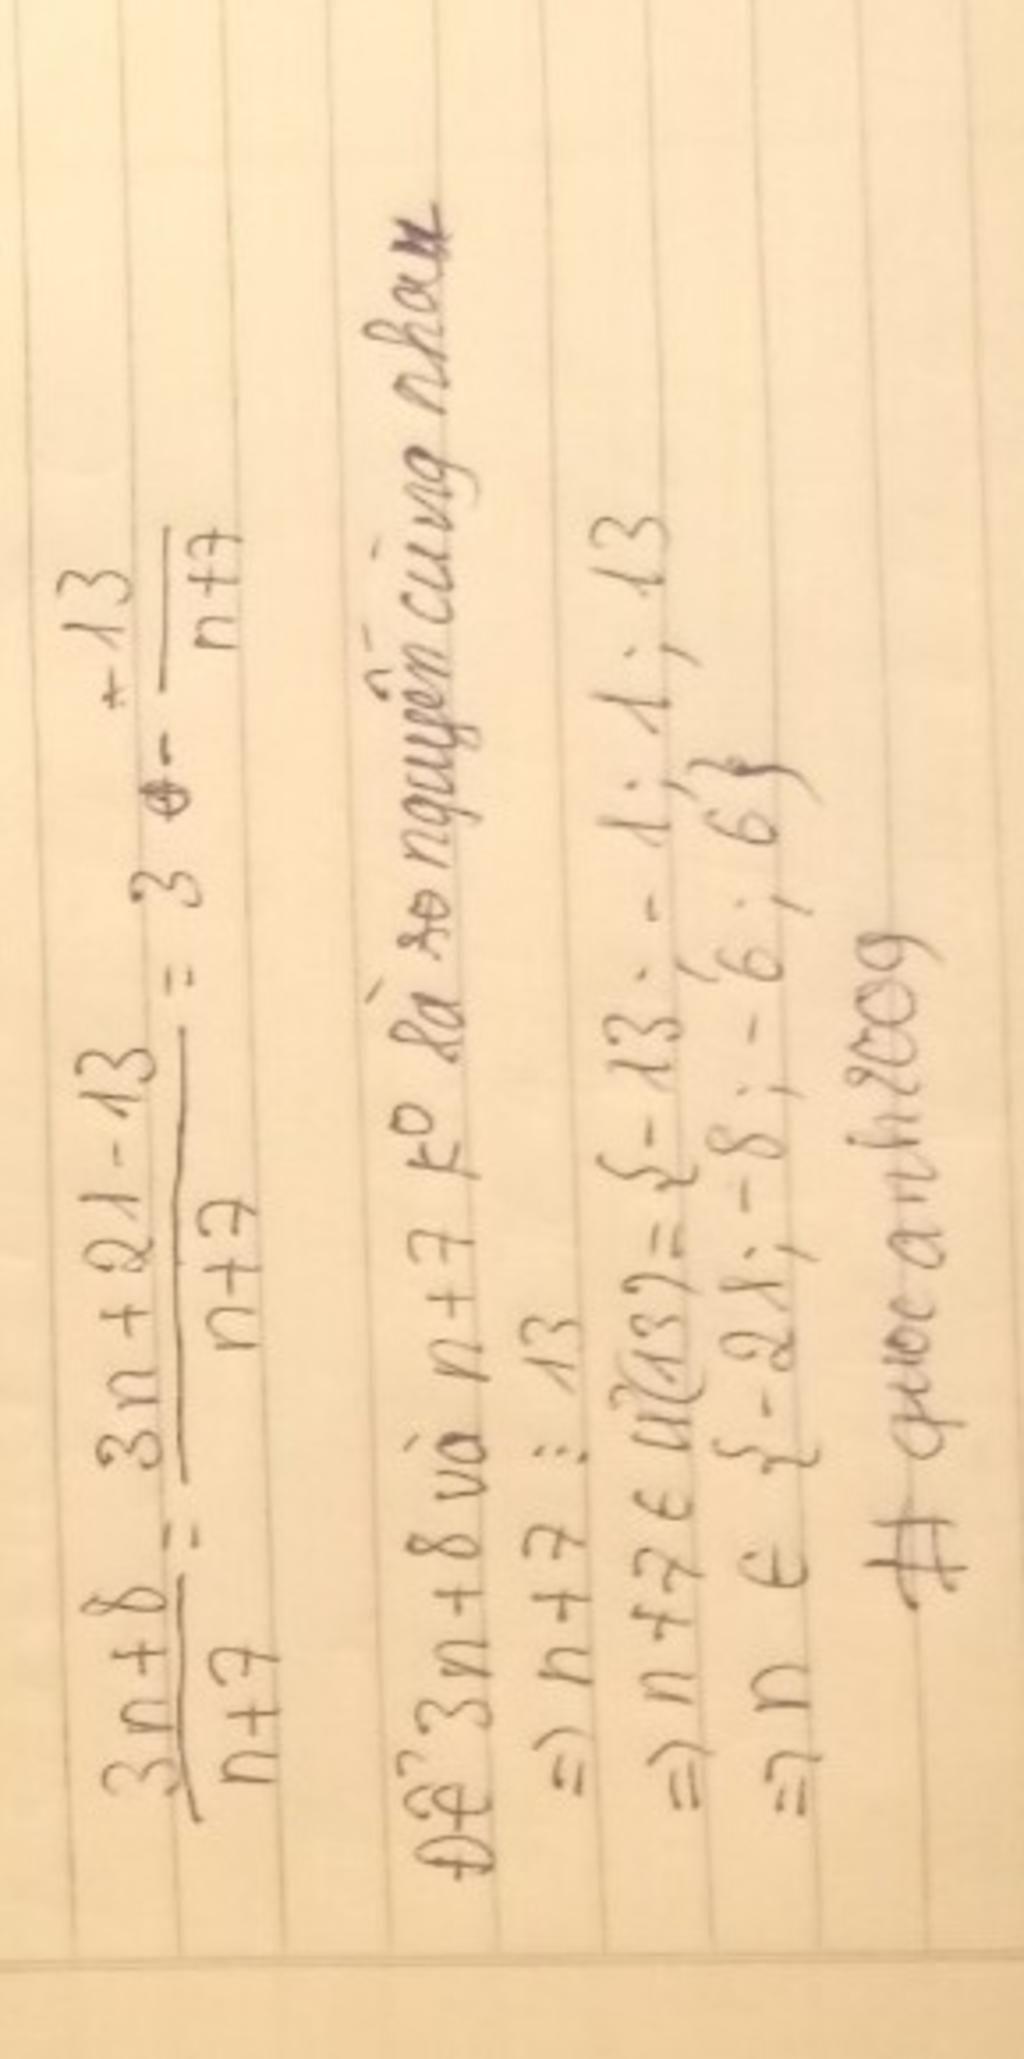 3n+8 / n+7 = 3n+21-13 / n+7 = 3 - -13 / n+7
Để 3n+8 và n+7 k⁰ là số nguyên cùng nhau
=) n+7 ⋮ 13
=) n+7 ∈ Ư(13) = {-13; -1; 1; 13
=) n ∈ {-21; -8; -6; 6}
# quocanh2009